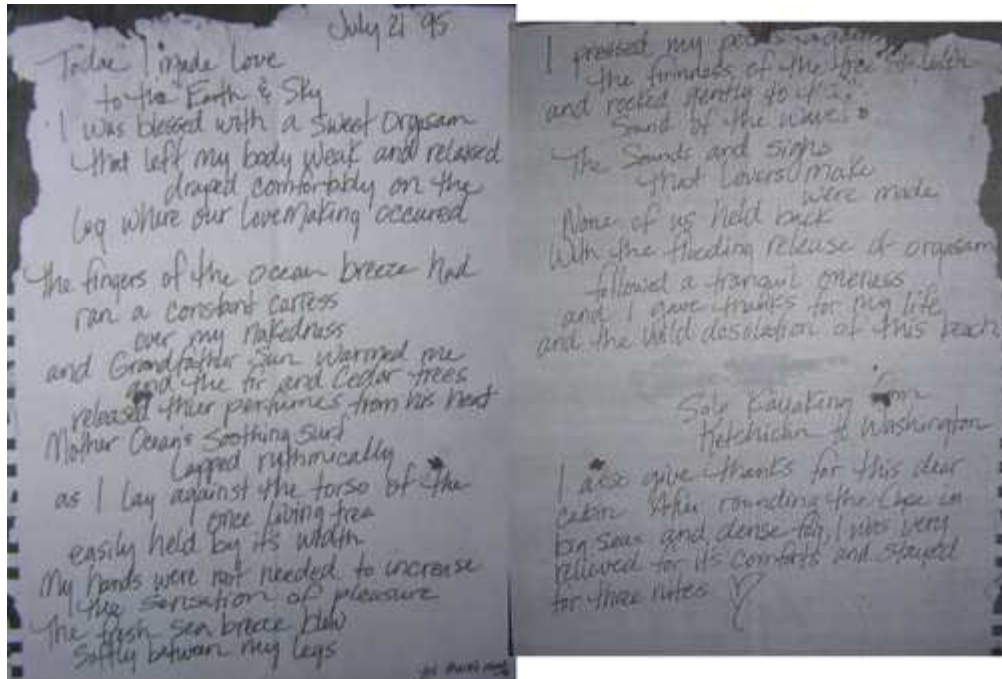 July 21 95
Today I made Love
to the Earth & Sky
I was blessed with a sweet Orgasam
that left my body weak and relaxed
draped comfortably on the
log where our lovemaking occured
The fingers of the ocean breeze had
ran a constant carress
over my nakedness
and Grandfather Sun warmed me
and the fir and Cedar trees
released thier perfumes from his heat
Mother Ocean's Soothing surf
Lapped rythmically
as I lay against the torso of the
once living tree
easily held by its width
My hands were not needed to increase
the sensation of pleasure
The fresh sea breeze blew
softly between my legs
I pressed my
the firmness of the tree beneath
and rocked gently to the
Sound of the waves
The Sounds and sighs
that Lovers make
were made
None of us held back
With the flooding release of orgasam
followed a tranquil oneness
and I gave thanks for my life
and the wild desolation of this beach
Solo Kayaking from
Ketchican to Washington
I also give thanks for this dear
cabin. After rounding the Cape in
big seas and dense fog, I was very
relieved for its comforts and stayed
for three nites